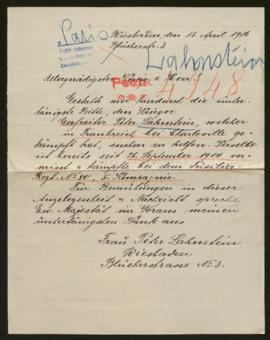 Wiesbaden, den 18. April 1916
Blücherstr. 3
Paris
Lahnstein
4948
Allergnädigster König u. Herr!
Gestatte mir hierdurch die unter-
tänigste Bitte, den
Gefreiter Peter Lahnstein, welcher
in Frankreich bei ge-
kämpft hat, suchen zu helfen. Derselbe
ist bereits seit 26. September 1914 ver-
misst u. kämpfte bei dem Füsilier
Regt. No 80, 5. Kompagnie.
Für Bemühungen in dieser
Angelegenheit u. Nachricht spreche
Ew. Majestät im Voraus meinen
untertänigsten Dank aus
Frau Peter Lahnstein
Wiesbaden
Blücherstrasse No 3.